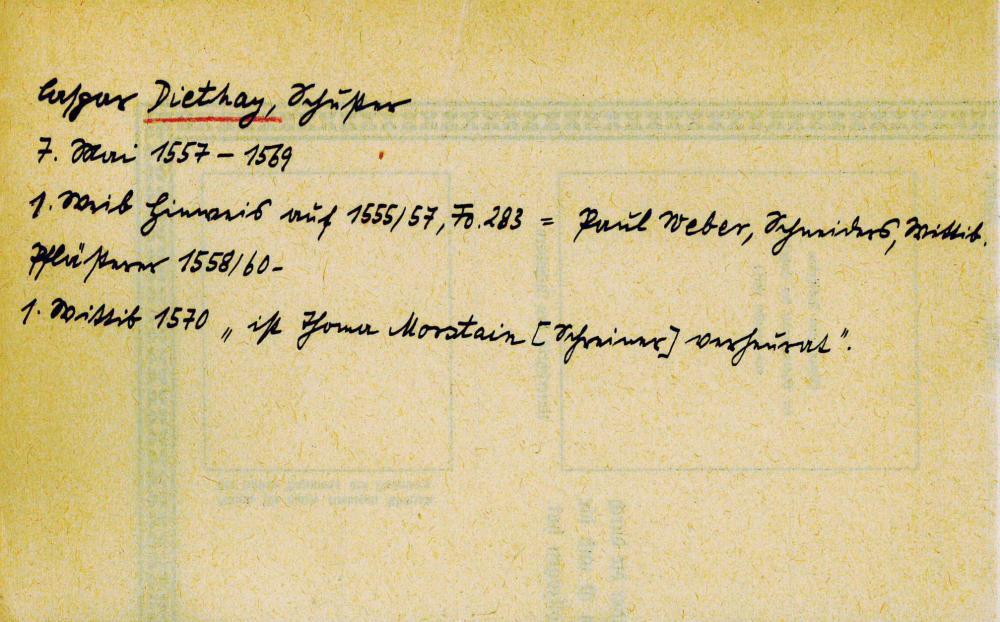 Caspar Diethay, Schuster
7. Mai 1557 – 1569
1. Weib Hinweis auf 1555/57, Fo. 283 = Paul Weber, Schneiders, Wittib.
Pflästerer 1558/60 -
1. Wittib 1570 „ ist Thoma Morstain [Schreiner] verheurat".